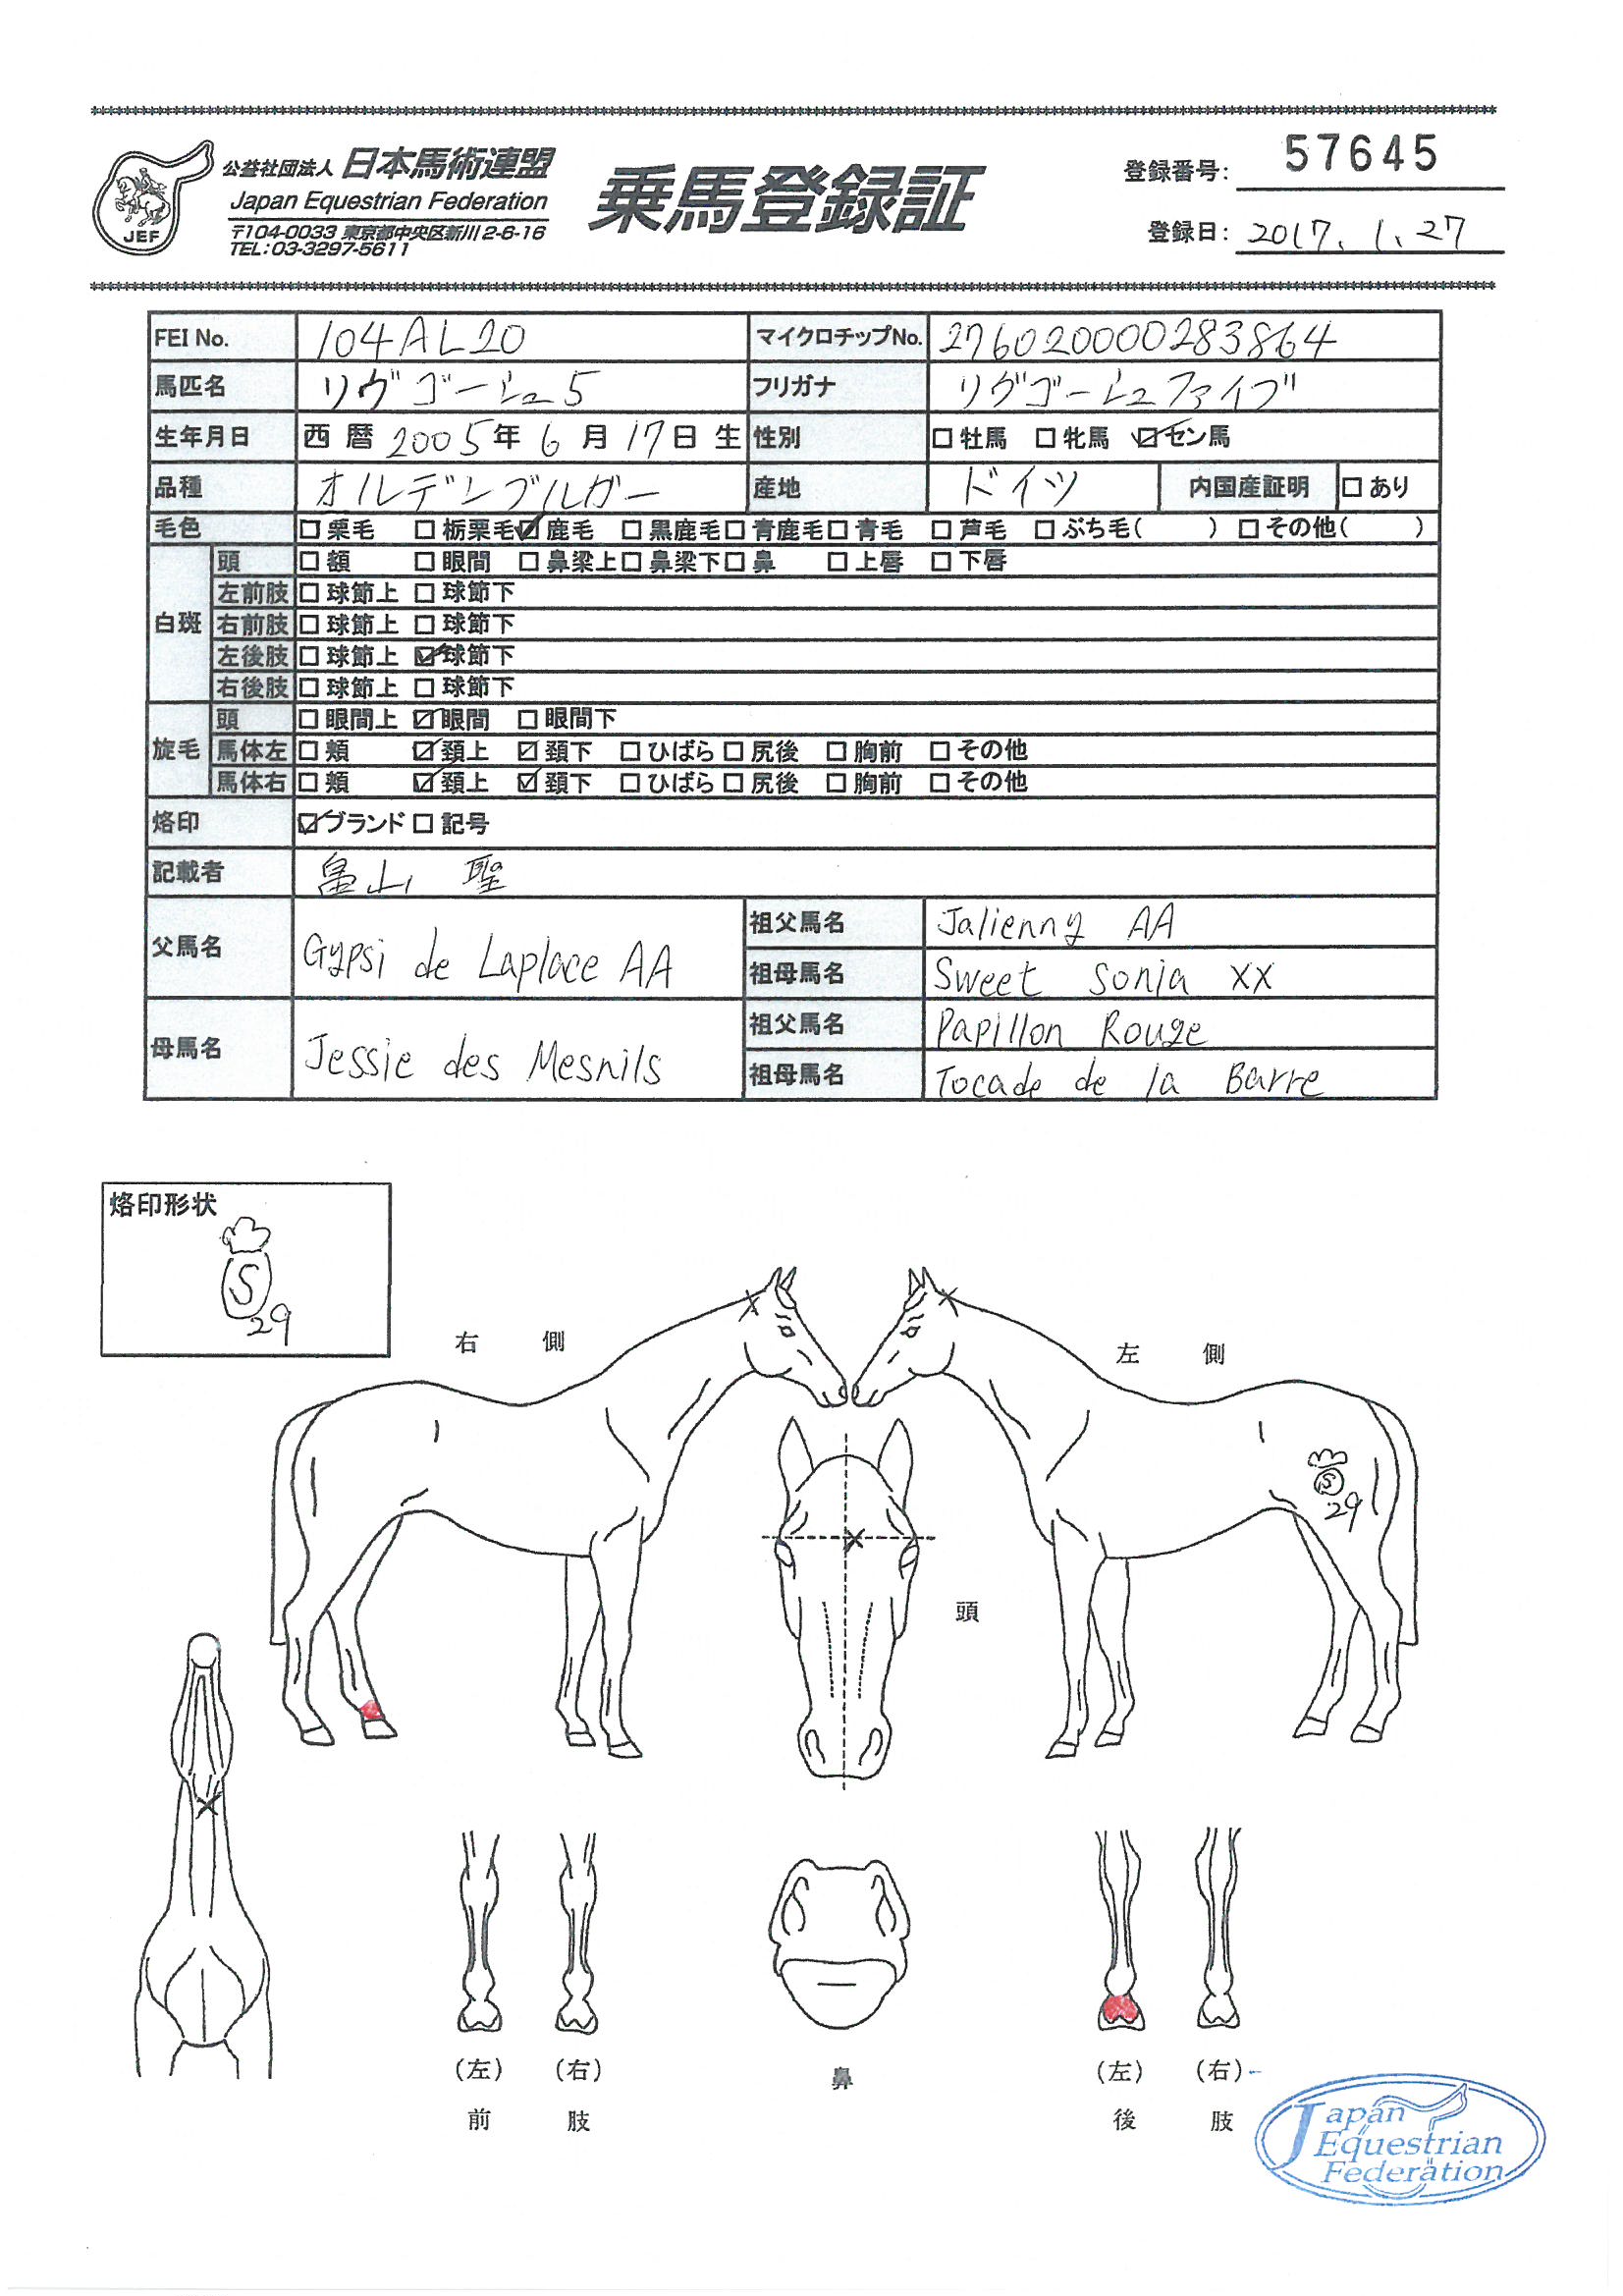 公益社団法人 日本馬術連盟
Japan Equestrian Federation
〒104-0033 東京都中央区新川2-6-16
TEL:03-3297-5611
JEF
乗馬登録証
登録番号: 57645
登録日: 2017.1.27
FEI No. 104AL20 マイクロチップNo. 276020000283864
馬匹名 リヴゴーシュ5 フリガナ リヴゴーシュファイブ
生年月日 西暦2005年6月17日生 性別 □牡馬 □牝馬 ☑セン馬
品種 オルデンブルガー 産地 ドイツ 内国産証明 □あり
毛色 □栗毛 □栃栗毛 ☑鹿毛 □黒鹿毛 □青鹿毛 □青毛 □芦毛 □ぶち毛( ) □その他( )
白斑 頭 □額 □眼間 □鼻梁上 □鼻梁下 □鼻 □上唇 □下唇
左前肢 □球節上 □球節下
右前肢 □球節上 □球節下
左後肢 □球節上 ☑球節下
右後肢 □球節上 □球節下
旋毛 頭 □眼間上 ☑眼間 □眼間下
馬体左 □頬 ☑頚上 ☑頚下 □ひばら □尻後 □胸前 □その他
馬体右 □頬 ☑頚上 ☑頚下 □ひばら □尻後 □胸前 □その他
烙印 ☑ブランド □記号
記載者 畠山 聖
父馬名 Gypsi de Laplace AA 祖父馬名 Jalienny AA
祖母馬名 Sweet Sonia xx
母馬名 Jessie des Mesnils 祖父馬名 Papillon Rouge
祖母馬名 Tocade de la Barre
烙印形状
S
29
右側
左側
S
29
頭
(左) (右) 鼻 (左) (右)
前肢 後肢
Japan
Equestrian
Federation